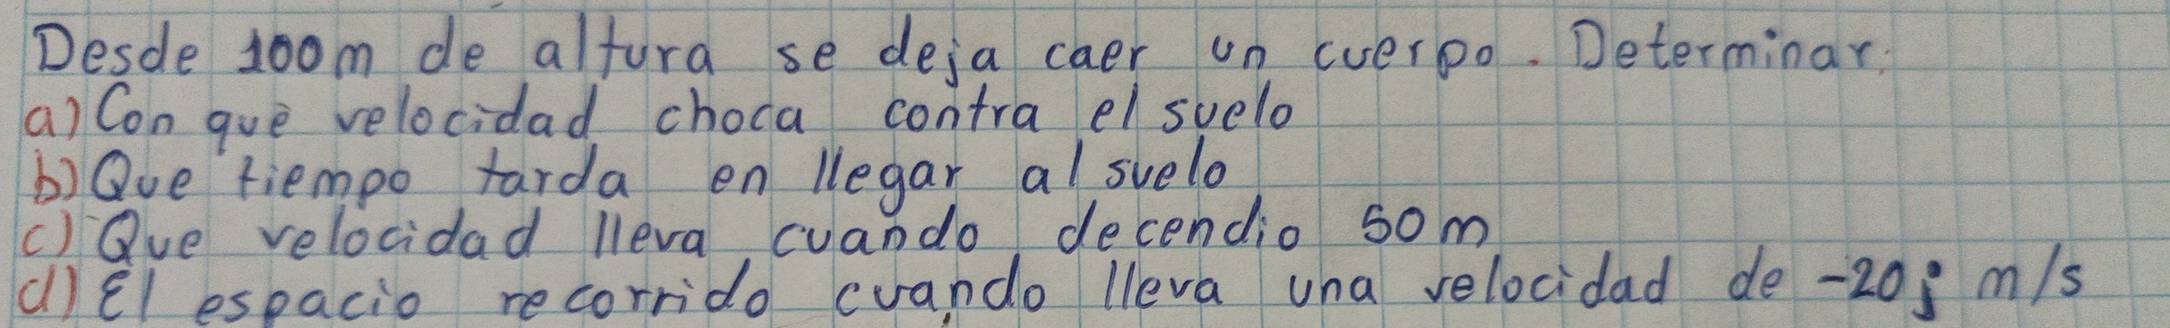 Desde 100m de altura se deja caer un cuerpo. Determinar:
a) Con què velocidad choca contra el suelo
b) Que tiempo tarda en llegar al suelo
c) Que velocidad lleva cuando decendio 50m
d) El espacio recorrido cuando lleva una velocidad de -20j m/s